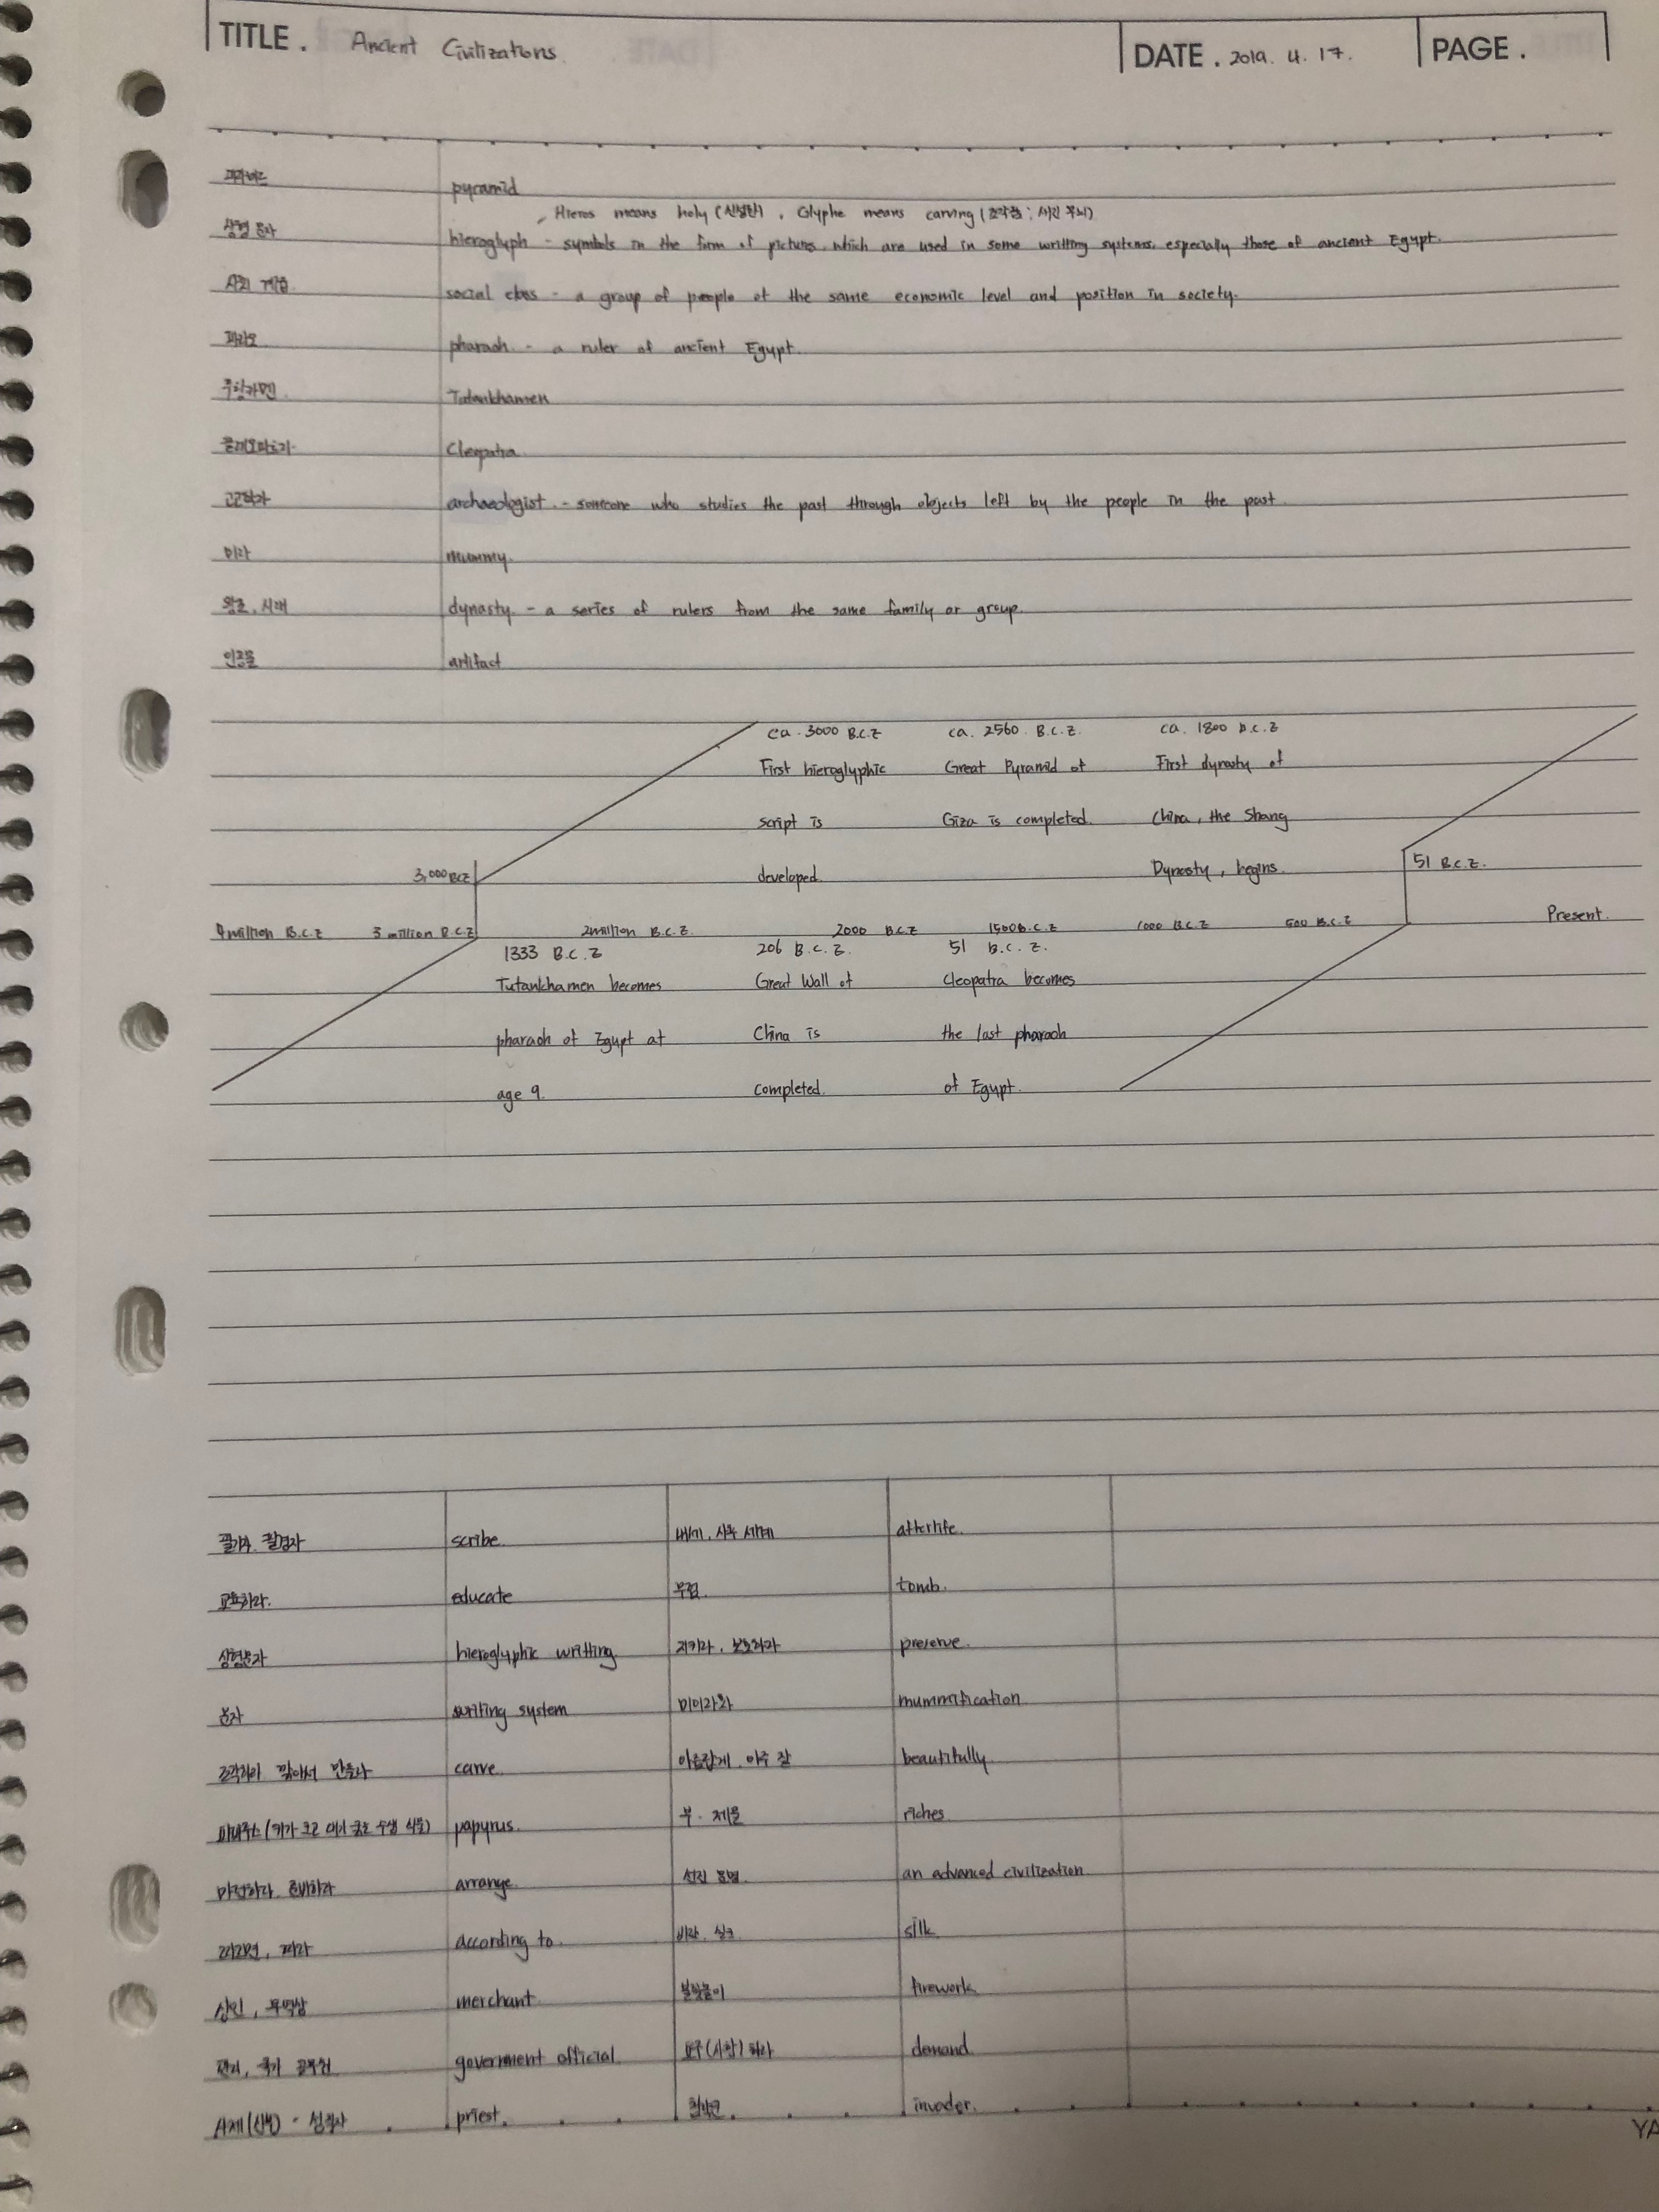 TITLE. Ancient Civilizations. DATE. 2019. 4. 17. PAGE.
피라미드 pyramid
Hieros means holy (신성한), Glyphe means carving (조각품; 새긴 무늬)
상형 문자 hieroglyph - symbols in the form of pictures, which are used in some writting systems, especially those of ancient Egypt.
사회 계층 social class - a group of people of the same economic level and position in society.
파라오 pharaoh. - a ruler of ancient Egypt.
투탕카멘 Tutankhamen
클레오파트라 Cleopatra
고고학자 archaeologist. - someone who studies the past through objects left by the people in the past
미라 mummy.
왕조, 시대 dynasty. - a series of rulers from the same family or group.
인공물 artifact
ca. 3000 B.C.E ca. 2560. B.C.E. ca. 1800 B.C.E
First hieroglyphic Great Pyramid of First dynasty of
script is Giza is completed. China, the Shang
developed. Dynasty, begins.
3,000 B.C.E 51 B.C.E.
4million B.C.E 3 million B.C.E 2million B.C.E. 2000 B.C.E 1500B.C.E 1000 B.C.E 500 B.C.E Present.
1333 B.C.E 206 B.C.E. 51 B.C.E.
Tutankhamen becomes Great Wall of Cleopatra becomes
pharaoh of Egypt at China is the last pharaoh
age 9. completed. of Egypt.
필기사, 필경자 scribe. 내세, 사후 세계 afterlife.
교육하다. educate 무덤. tomb.
상형문자 hieroglyphic writting 지키다, 보호하다 preserve.
문자 writing system 미이라화 mummification
조각하다 깎아서 만들다 carve. 아름답게. 아주 잘 beautifully.
파피루스 (키가 크고 대가 굵은 수생 식물) papyrus. 부. 재물 riches
마련하다. 준비하다 arrange. 선진 문명. an advanced civilization
따르면, 따라 according to. 비단. 실크 silk.
상인, 무역상 merchant. 불꽃놀이 firework
관리, 국가 공무원 goverment official. 요구(사항)하다 demand
사제(신부) · 성직자 priest. 침략군. invader.
YA